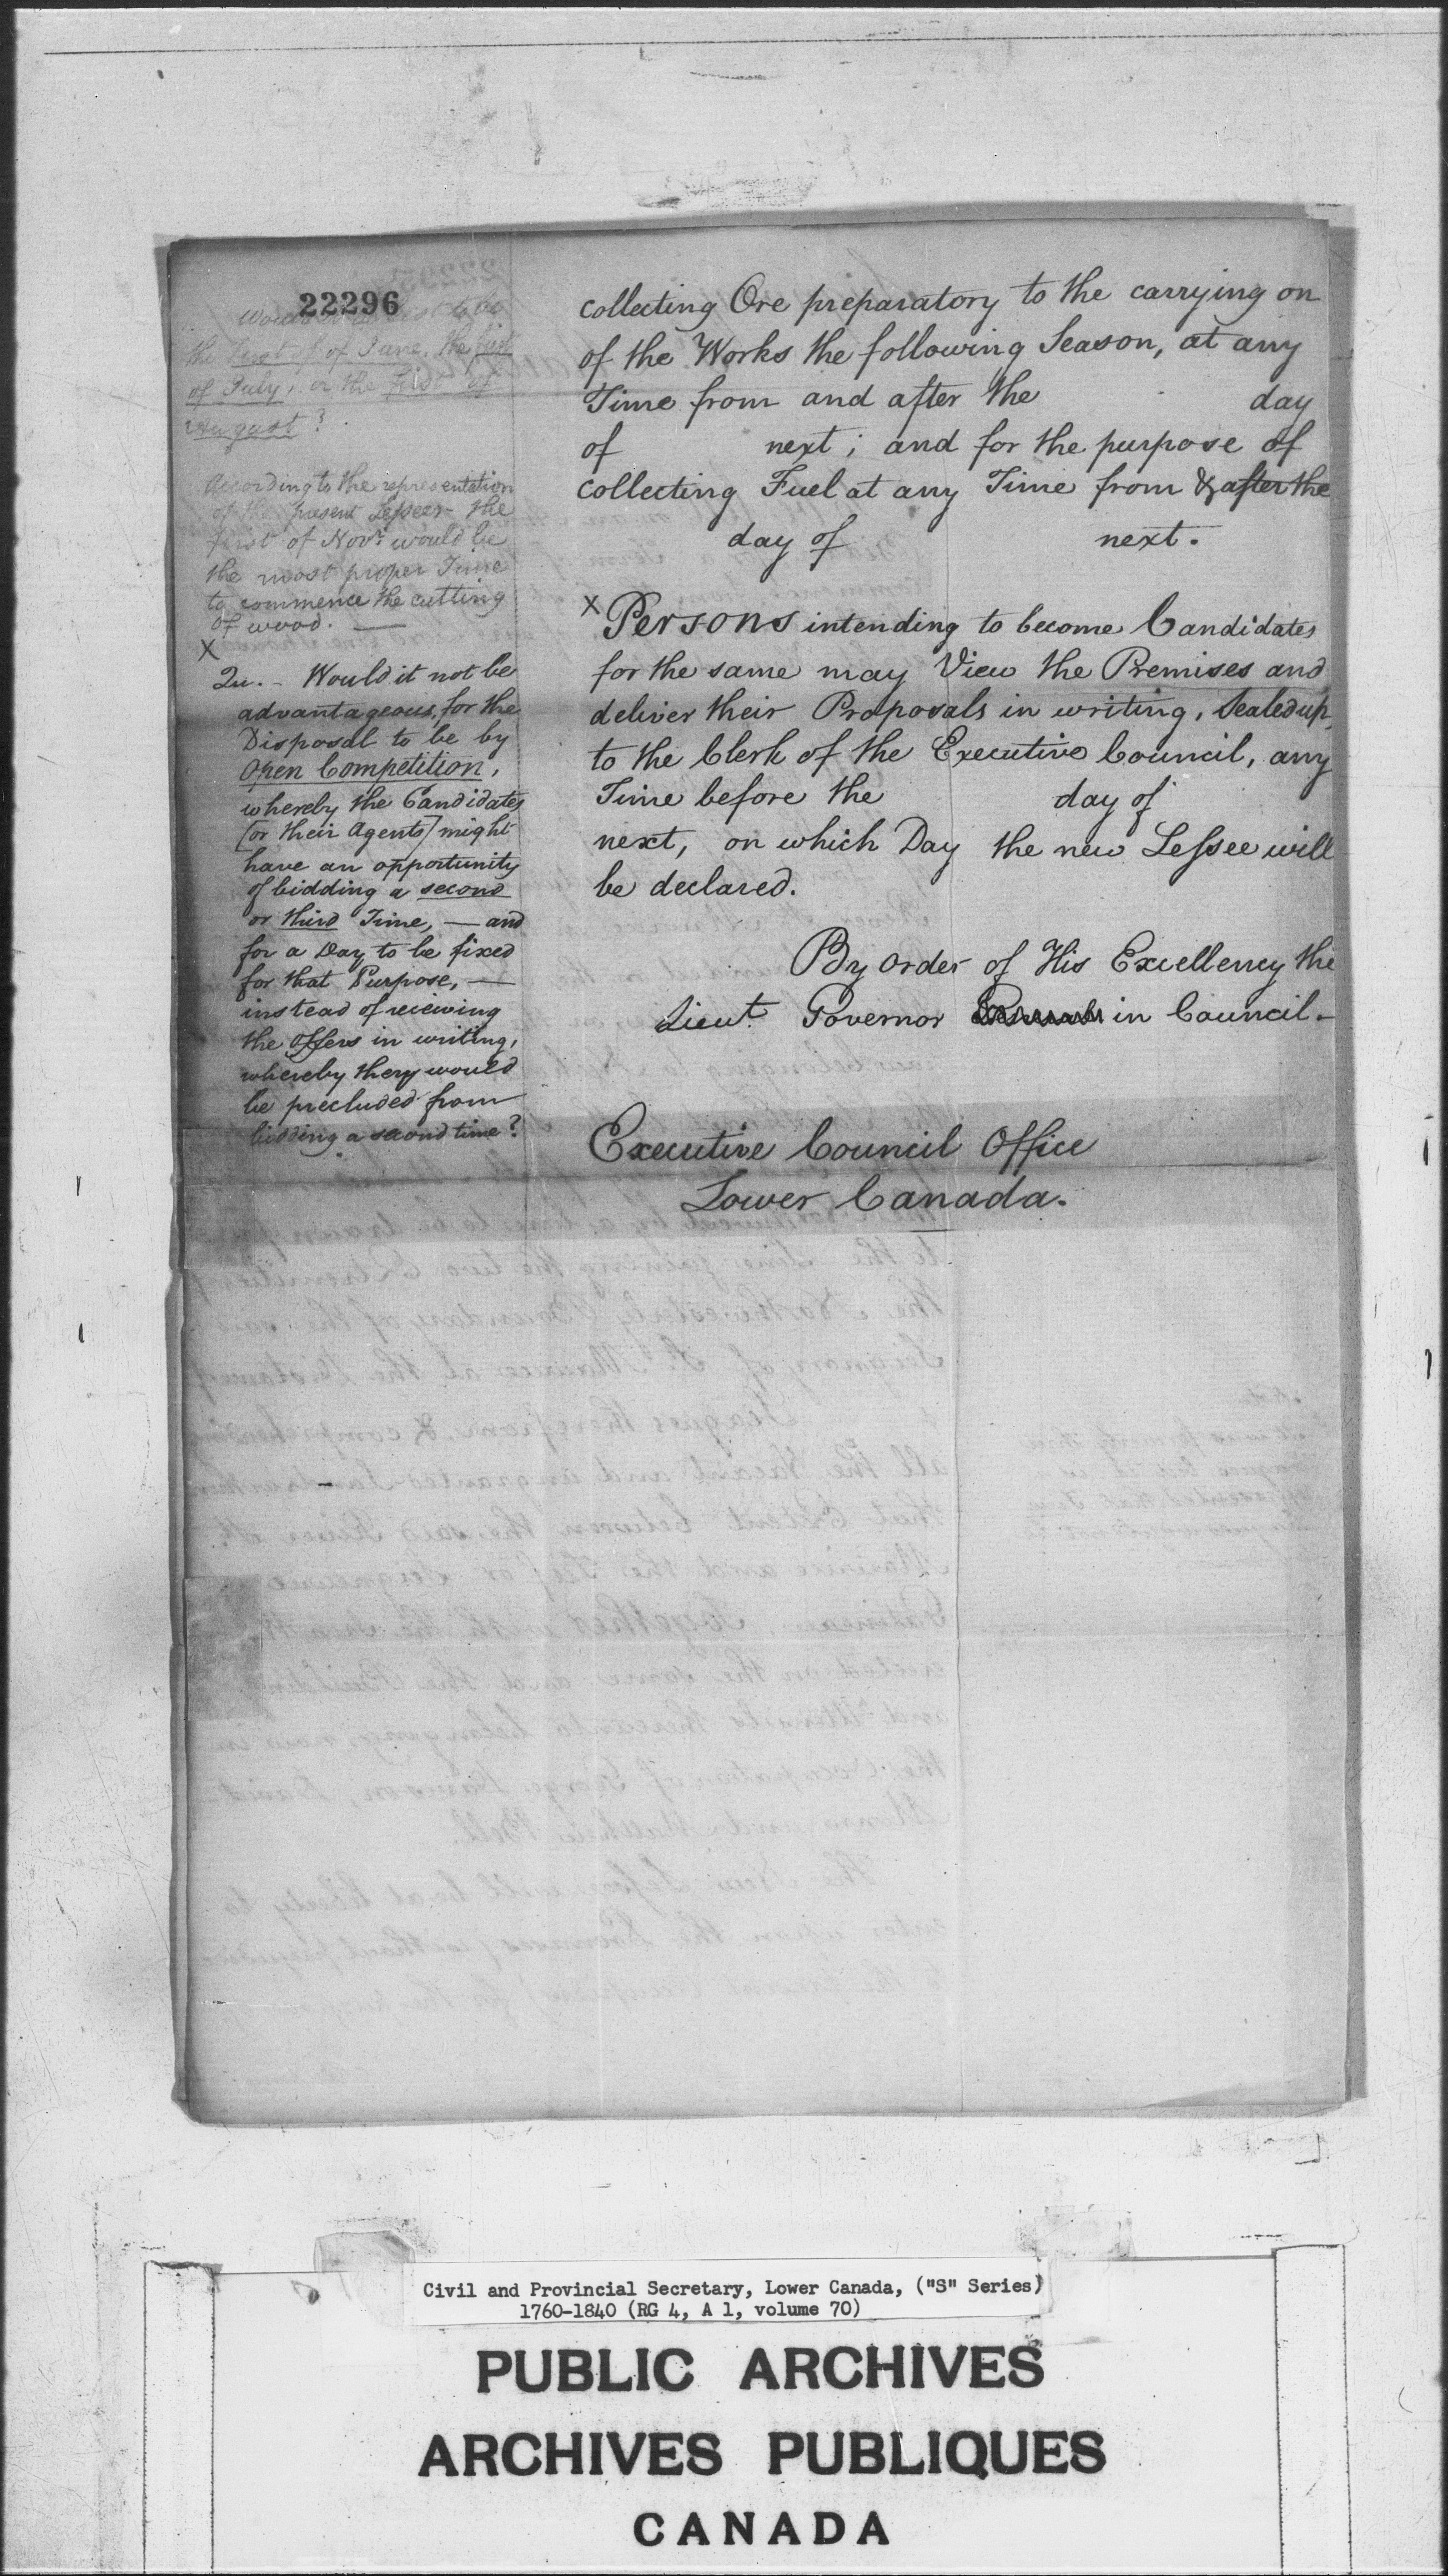 22296
the first of June, the first
of July, or the first of
August?
According to the representation
of the present Lessees - the
first of Novr. would be
the most proper Time
to commence the cutting
of wood. —
X
Qu. - Would it not be
advantageous, for the
Disposal to be by
Open Competition,
whereby the Candidates
[or their Agents] might
have an opportunity
of bidding a second
or third Time, — and
for a Day to be fixed
for that Purpose, —
instead of receiving
the Offers in writing,
whereby they would
be precluded from
bidding a second time?
collecting Ore preparatory to the carrying on
of the Works the following Season, at any
Time from and after the day
of next; and for the purpose of
collecting Fuel at any Time from & after the
day of next.
X Persons intending to become Candidates
for the same may View the Premises and
deliver their Proposals in writing, Sealed up,
to the Clerk of the Executive Council, any
Time before the day of
next, on which Day the new Lessee will
be declared.
By order of His Excellency the
Lieut. Governor in Council -
Executive Council Office
Lower Canada.
Civil and Provincial Secretary, Lower Canada, ("S" Series)
1760-1840 (RG 4, A 1, volume 70)
PUBLIC ARCHIVES
ARCHIVES PUBLIQUES
CANADA